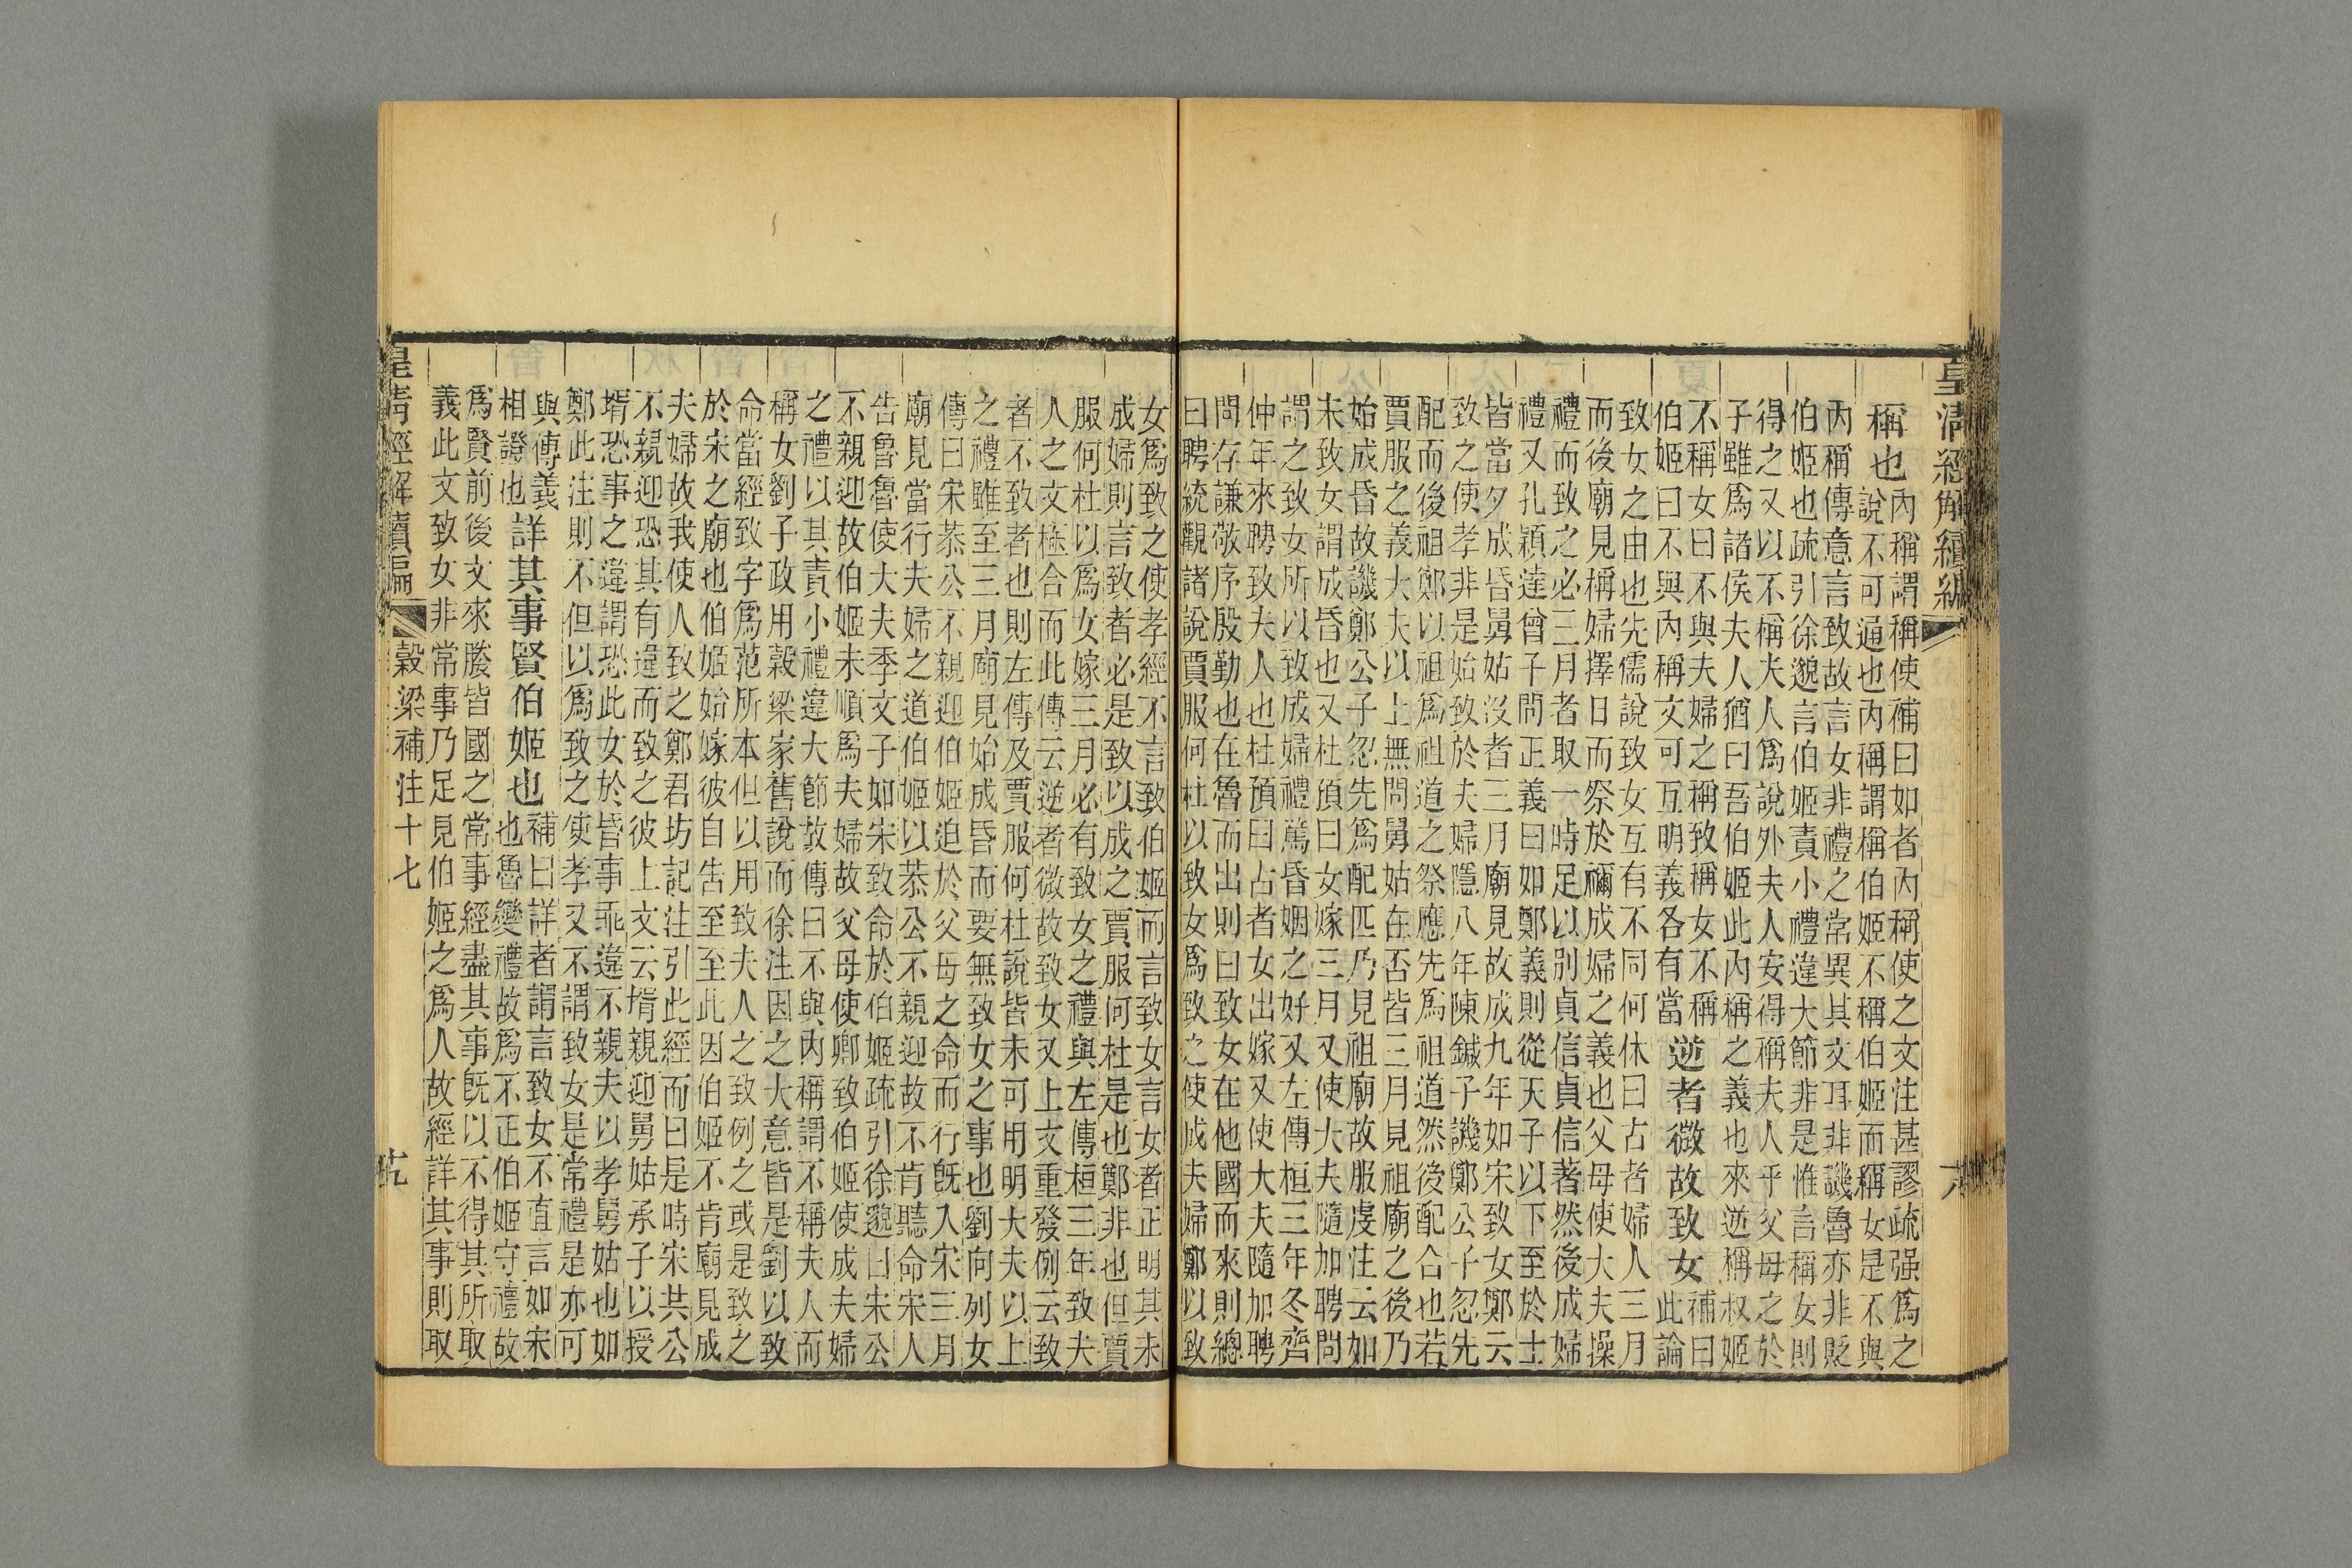 皇清經解續編
稱也
內稱謂稱使補曰如者內稱使之文注甚謬疏强爲之
說不可通也內稱謂稱伯姬不稱伯姬而稱女是不與
內稱傳意言致故言女非禮之常異其文耳非譏魯亦非貶
伯姬也疏引徐邈言伯姬責小禮違大節非是惟言稱女則
得之又以不稱夫人爲說外夫人安得稱夫人乎父母之於
子雖爲諸侯夫人猶曰吾伯姬此內稱之義也來逆稱叔姬
不稱女曰不與夫婦之稱致稱女不稱
伯姬曰不與內稱文可互明義各有當
逆者微故致女
補曰
此論
致女之由也先儒說致女互有不同何休曰古者婦人三月
而後廟見稱婦擇日而祭於禰成婦之義也父母使大夫操
禮而致之必三月者取一時足以別貞信貞信著然後成婦
禮又孔穎達曾子問正義曰如鄭義則從天子以下至於士
皆當夕成昏舅姑沒者三月廟見故成九年如宋致女鄭云
致之使孝非是始致於夫婦隱八年陳鍼子譏鄭公子忽先
配而後祖鄭以祖爲祖道之祭應先爲祖道然後配合也若
賈服之義大夫以上無問舅姑在否皆三月見祖廟之後乃
始成昏故譏鄭公子忽先爲配匹乃見祖廟故服虔注云如
未致女謂成昏也又杜預曰女嫁三月又使大夫隨加聘問
謂之致女所以致成婦禮篤昏姻之好又左傳桓三年冬齊
仲年來聘致夫人也杜預曰古者女出嫁又使大夫隨加聘
問存謙敬序殷勤也在魯而出則曰致女在他國而來則總
曰聘統觀諸說賈服何杜以致女爲致之使成夫婦鄭以致
女爲致之使孝經不言致伯姬而言致女言女者正明其未
成婦則言致者必是致以成之賈服何杜是也鄭非也但賈
服何杜以爲女嫁三月必有致女之禮與左傳桓三年致夫
人之文極合而此傳云逆者微故致女又上文重發例云致
者不致者也則左傳及賈服何杜說皆未可用明大夫以上
之禮雖至三月廟見始成昏而要無致女之事也劉向列女
傳曰宋恭公不親迎伯姬迫於父母之命而行既入宋三月
廟見當行夫婦之道伯姬以恭公不親迎故不肯聽命宋人
告魯魯使大夫季文子如宋致命於伯姬疏引徐邈曰宋公
不親迎故伯姬未順爲夫婦故父母使卿致伯姬使成夫婦
之禮以其責小禮違大節故傳曰不與內稱謂不稱夫人而
稱女劉子政用穀梁家舊說而徐注因之大意皆是劉以致
命當經致字爲范所本但以用致夫人之致例之或是致之
於宋之廟也伯姬始嫁彼自告至至此因伯姬不肯廟見成
夫婦故我使人致之鄭君坊記注引此經而曰是時宋共公
不親迎恐其有違而致之彼上文云壻親迎舅姑承子以授
壻恐事之違謂恐此女於昏事乖違不親夫以孝舅姑也如
鄭此注則不但以爲致之使孝又不謂致女是常禮是亦可
與傳義
相證也
詳其事賢伯姬也
補曰詳者謂言致女不直言如宋
也魯變禮故爲不正伯姬守禮故
爲賢前後文來媵皆國之常事經盡其事既以不得其所取
義此文致女非常事乃足見伯姬之爲人故經詳其事則取
皇清經解續編
穀梁補注十七